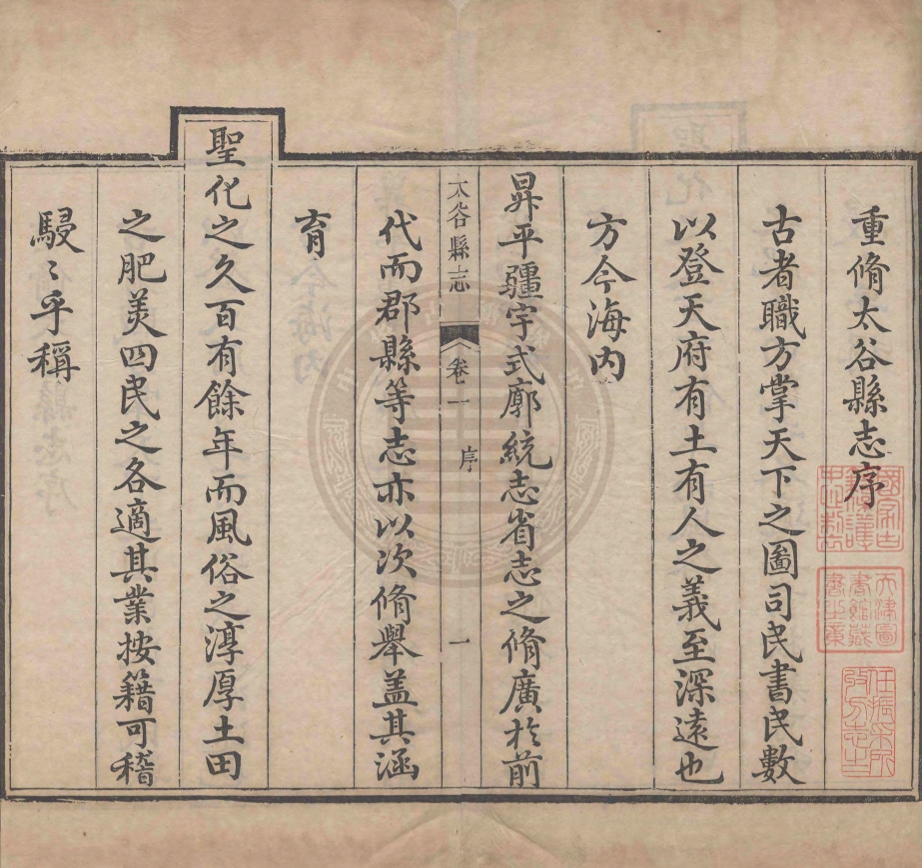 重脩太谷縣志序
古者職方掌天下之圖司民書民數
以登天府有土有人之義至深遠也
方今海内
昇平疆宇式廓統志省志之脩廣於前
太谷縣志 卷一 序 一
代而郡縣等志亦以次脩舉盖其涵
育
聖化之久百有餘年而風俗之淳厚土田
之肥美四民之各適其業按籍可稽
駸〻乎稱
天津圖書館藏書之章
任振采所收方志